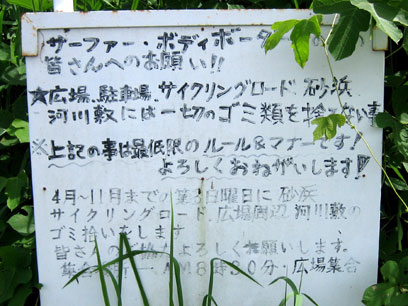 サーファー・ボディボーダー
皆さんへのお願い!!
★広場、駐車場、サイクリングロード、砂浜、
河川敷には一切のゴミ類を捨てない事
※上記の事は最低限のルール&マナーです!
よろしくおねがいします!!
4月~11月までの第3日曜日に砂浜
サイクリングロード、広場周辺、河川敷の
ゴミ拾いをします
皆さんのご協力よろしくお願いします。
AM8時30分・広場集合